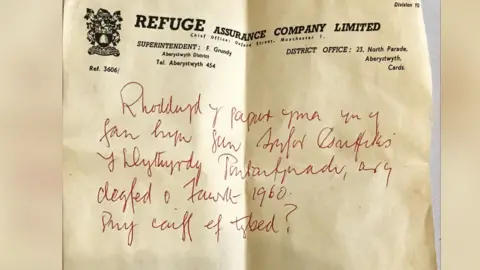 Division 10
REFUGE ASSURANCE COMPANY LIMITED
Chief Office: Oxford Street, Manchester 1.
SUPERINTENDENT: F. Grundy
Aberystwyth District
Tel. Aberystwyth 454
DISTRICT OFFICE: 23, North Parade,
Aberystwyth,
Cards.
Ref. 3606/
Rhoddwyd y papur yma yn y
fan hyn gan Ifor Griffiths
Y Llythyrdy Pontarfynach, ar y
degfed o Fawrth 1960.
Pwy caiff ef tybed?